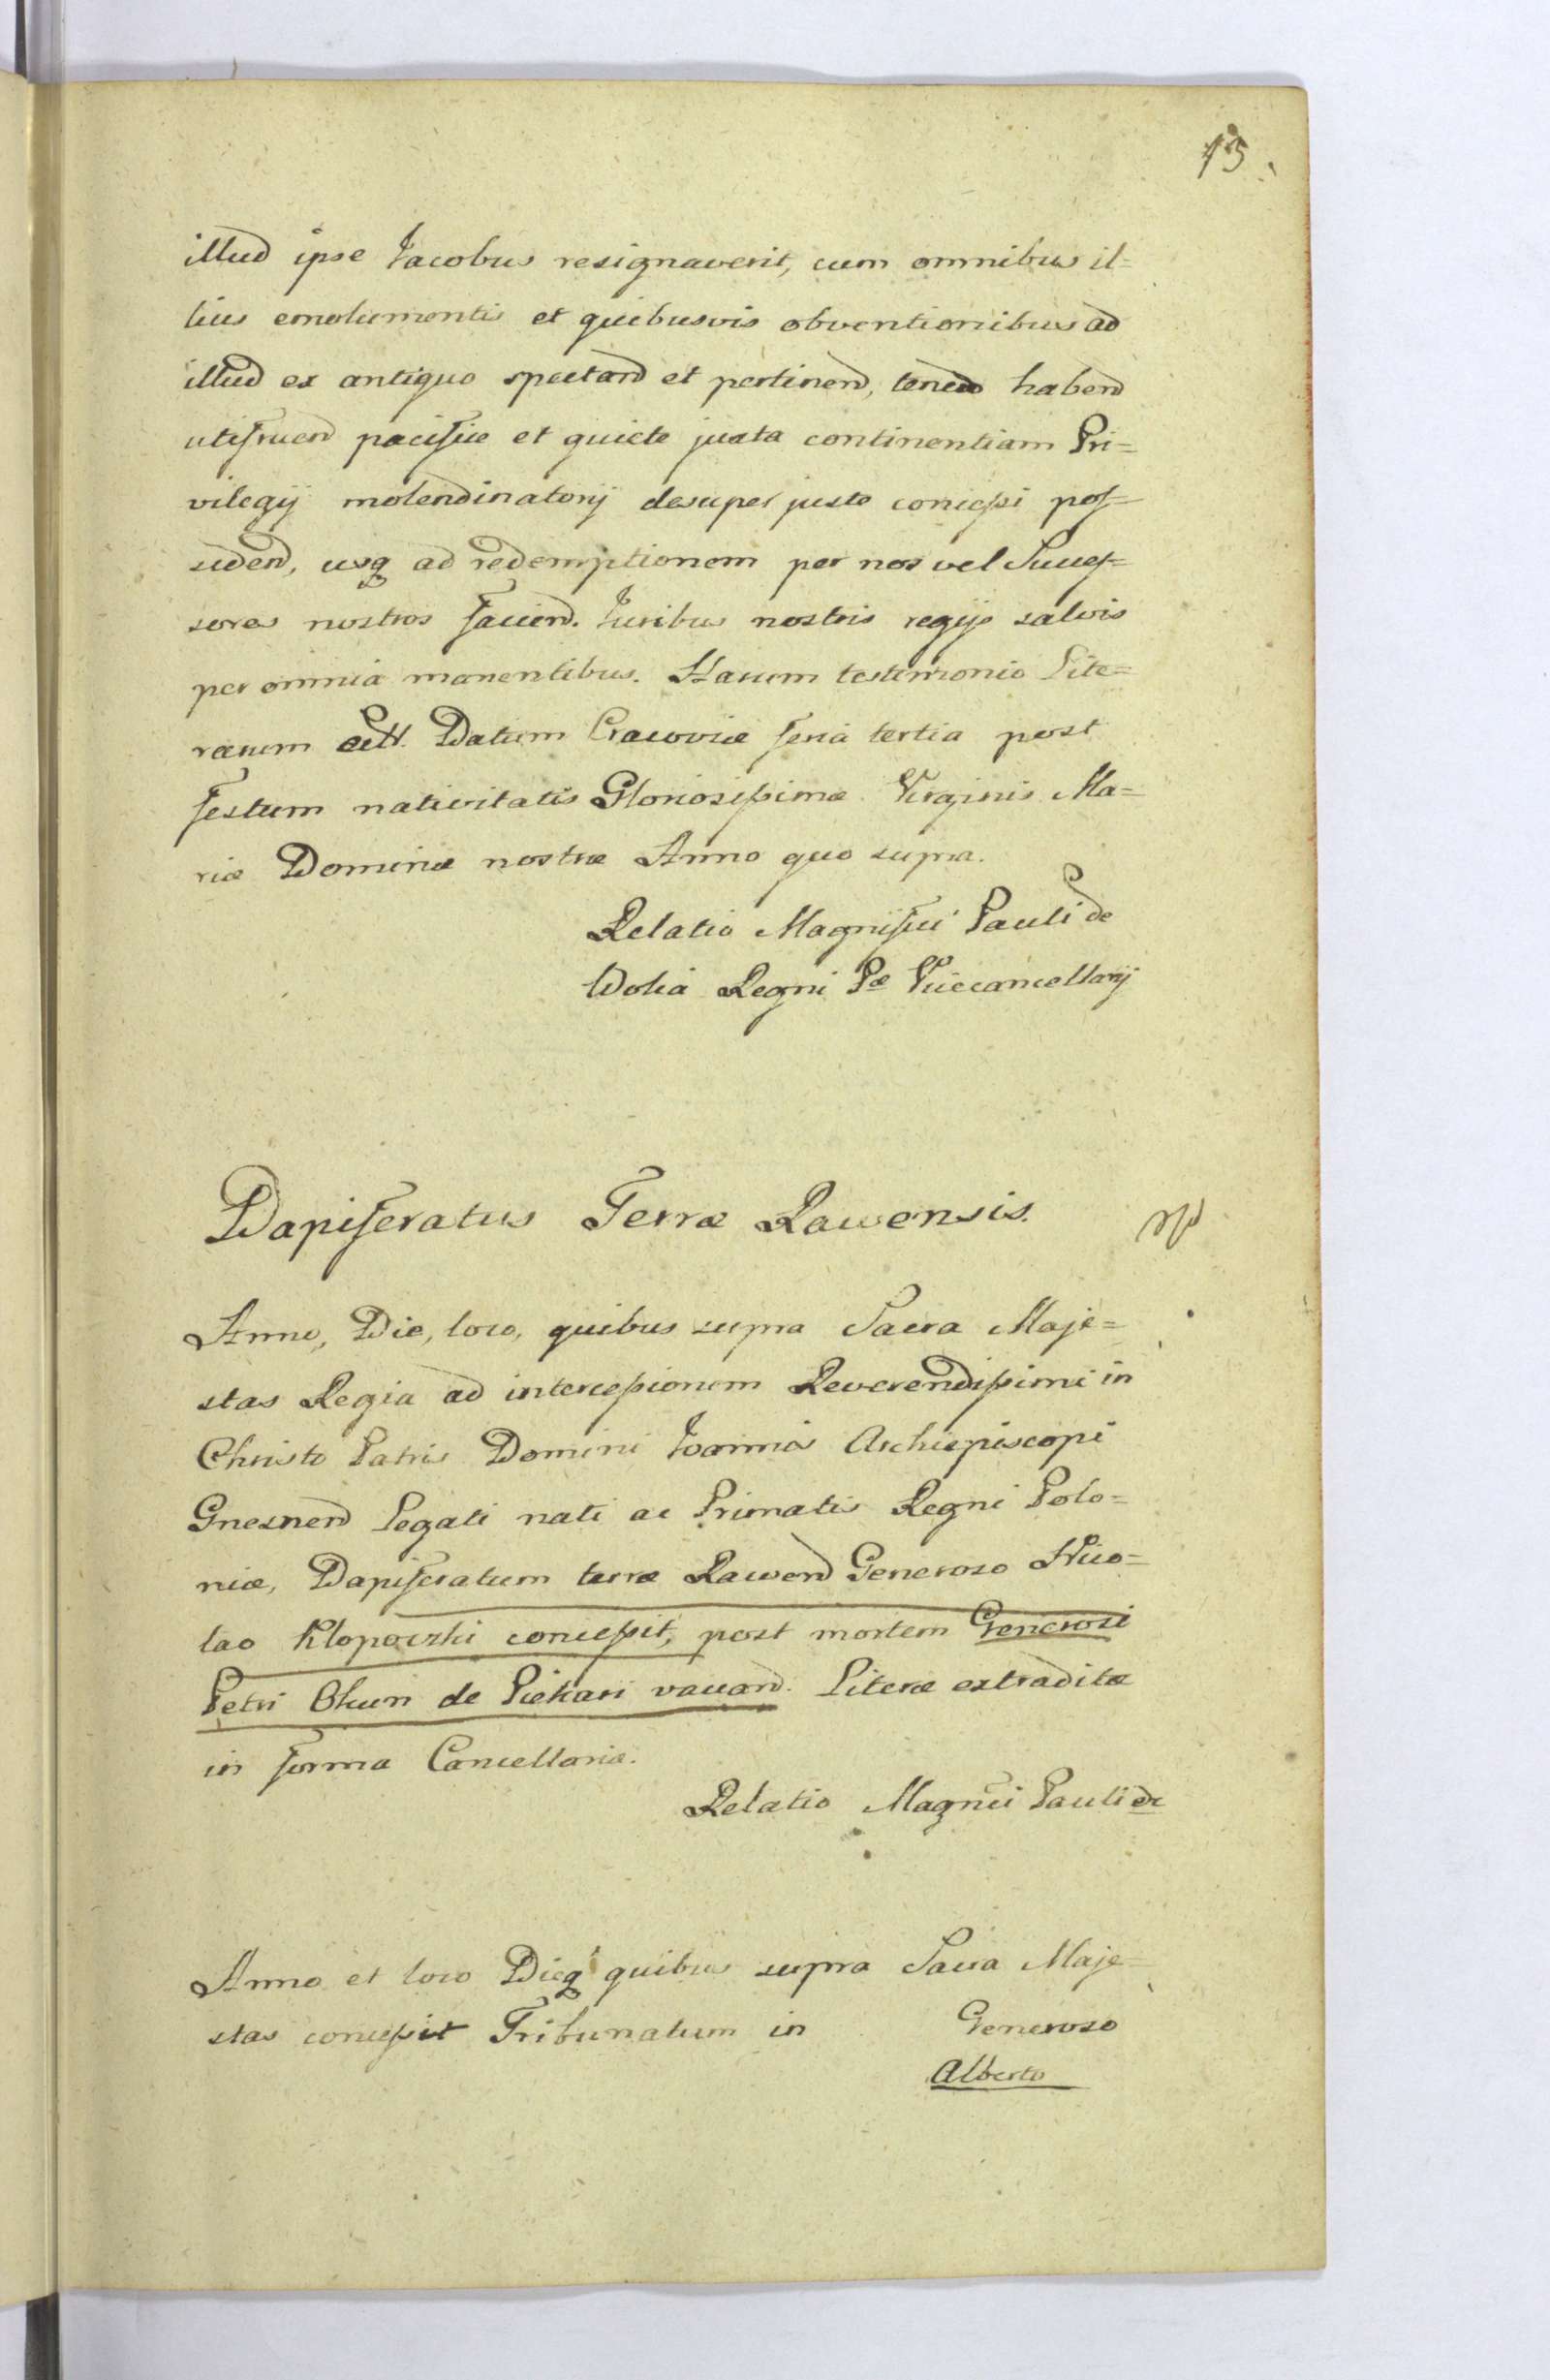 15.
illud ipse Jacobus resignaverit, cum omnibus il=
lius emolumentis et quibusvis obventionibus ad
illud ex antiquo spectand et pertinend, tenend habend
utifruend pacifice et quiete juxta continentiam Pri=
vilegij molendinatorij desuper juste concessi pos=
sidend, usq ad redemptionem per nos vel Succes=
sores nostros faciend. Juribus nostris regijs salvis
per omnia manentibus. Harum testimonio Lite=
rarum ett. Datum Cracoviæ feria tertia post
festum nativitatis Gloriosissimæ Virginis Ma=
riæ Dominæ nostræ Anno quo supra.
Relatio Magnifici Pauli de
Wolia Regni Pæ Vicecancellarij
Dapiferatus Terræ Rawensis.
Anno, Die, loco, quibus supra Sacra Maje=
stas Regia ad intercessionem Reverendissimi in
Christo Patris Domini Joannis Archiepiscopi
Gnesnend Legati nati ac Primatis Regni Polo=
niæ, Dapiferatum terræ Rawend Generoso Nico=
lao Klopoczki concessit, post mortem Generosi
Petri Okun de Piekari vacand. Literæ extraditæ
in forma Cancellariæ.
Relatio Magnici Pauli de
Anno et loco Dieq quibus supra Sacra Maje=
stas concessit Tribunatum in Generoso
Alberto